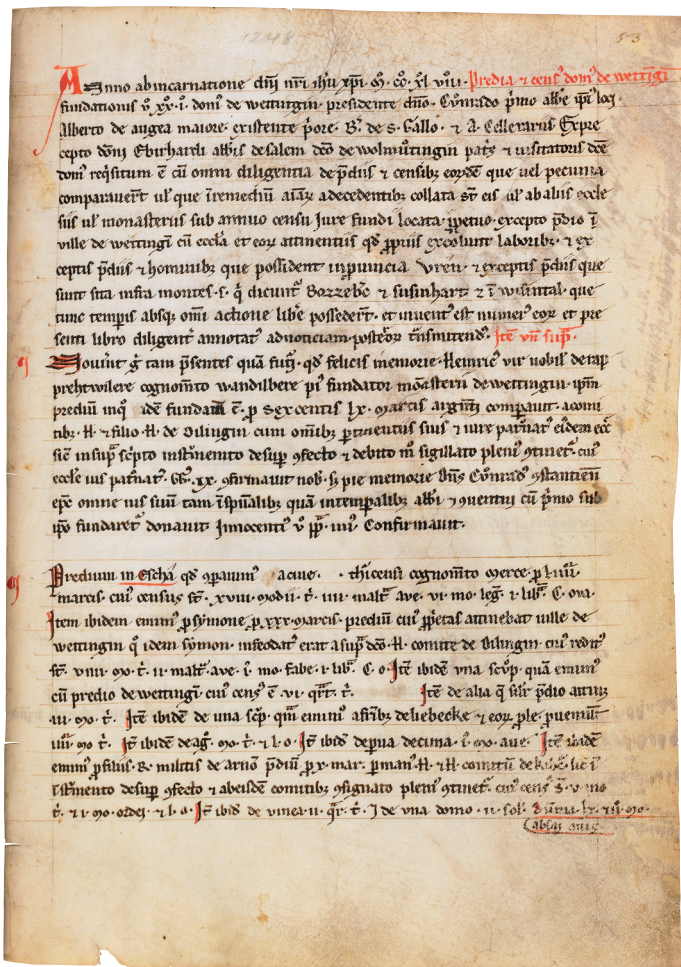 1248 53
Anno ab incarnatione dñi nr̃i ihũ xp̃i Mͦ.CCͦ.XL viijͦ. Predia ⁊ censꝰ domꝰ de wettingi
fundationis v̊ xx.iͦ. domꝰ de wettingin presidente dño. Cůnrado p̃mo abb̃e ip̃i loci.
Alberto de augea maiore. existente p̃ore. B. de S. Gallo. ⁊ A. Cellerariis Ex pre
cepto dom̃i Eberhardi abb̃is de Salem dc̃o de wolmůtingin patꝭ ⁊ visitatoris dc̃e
domꝰ reqͥsitum ẽ cũ omni diligentia de p̃diis ⁊ censibꝫ eorundẽ que uel pecunia
comparauer̃t ul̃ que ĩ remediũ aĩarꝝ a decedentibꝫ collata st̃ eis ul̃ ab aliis eccle
siis ul̃ monasteriis sub annuo censu Jure fundi locata ꝑpetuo. excepto p̃dio ĩ
ville de wettingi cũ eccl̃a et eorꝝ attinentiis qd̃ ꝓpriis excolunt laboribꝫ. ⁊ ex
ceptis p̃diis ⁊ hominibꝫ que possident in ꝓuincia Vren. ⁊ exceptis p̃diis que
sunt sita infra montes .s. q̃ dicunt̃ Bozzebc ⁊ susinhart ⁊ ĩ wisintal. que
tunc temporis absqꝫ omĩ actione libe possedert̃. et inuent est numerꝰ eorꝝ et pre
senti libro diligent̃ annotatꝰ ad noticiam posteroꝝ tñsmitendꝰ. Itẽ vñ sup̃.
Nouĩt g̊ tam p̃sentes quã fut̃i. qd̃ felicis memorie. Heinricꝰ vir nobil̃ de rap
prehtwilere cognom̃to wandilbere piꝰ fundator monãsterii de wettingin. ip̃m
prediũ in quo idẽ fundatũ ẽ. ꝑ sexcentis lx. marcis argẽti comparauit. a comi
tibꝫ. H. ⁊ filio .H. de Dilingin cum om̃ibꝫ ꝑtinentiis suis ⁊ iure pat̃natꝰ eiꝰdem ecc̃e
sic̃ in sup̃a sc̃pto instrumento desuper ꝯfecto ⁊ debito mͦ sigillato pleniꝰ ꝯtinet̃. cuiꝰ
eccl̃e ius pat̃natꝰ. xx. ꝯfirmauit nob̃. s. pie memorie dñs Cůnradꝰ ꝯstantieñ
epc̃ omne ius suũ tam ĩ spũalibꝫ quã in temporalibꝫ abb̃i ⁊ ꝯuentui cũ p̃mo sub
ip̃o fundaret̃ donauit Innocentiꝰ v̊ pp̃. iiijꝰ. Confirmauit.
Predium in Eschã qd̃ ꝯparauimꝰ a ciue. thicensi cognom̃to Merce. ꝑ l.iiij.
marcis. cuiꝰ censꝰ st̃. xviij. modii. t̃. iij. malt̃. aue. vi. mo. leg̃. ⁊. lib̃. C. oua.
Item ibidem emimꝰ ꝑ symone. ꝑ xxx. marcis. prediũ cuiꝰ ꝓprietas attinebat uille de
wettingin qd̃ idem symon. infeodatꝰ erat a sup̃a dc̃o. H. comite de Dilingin. cuiꝰ redit̃
st̃. viij. mo. t̃. ii. malt̃. aue. i. mo. fabe. i. lib̃. C. o. Itẽ ibidẽ vna scop̃. quã emimꝰ
cũ predio de wettingi. cuiꝰ censꝰ ẽ. vi. qr̃t̃. t̃. Itẽ de alia q̃ silr̃ p̃dio attinet
iii. mo. t̃. Itẽ ibidẽ de una scop̃. quã emimꝰ a fr̃ibꝫ de liebecke ⁊ eorꝝ ꝓle. ꝓueniũt
iiij. mo. t̃. Itẽ ibidẽ de ag̃. mo. t̃. ⁊ l. o. Itẽ ibid̃ de parua decima. i. mo. aue. Itẽ ibidẽ
emimꝰ ꝑ filiis. R. militis de arnon p̃diũ ꝑ x. mar. ꝑ manꝰ. H. ⁊ H. comitũ de sic̃ ĩ
ĩst̃mento desuper ꝯfecto ⁊ ab eisdẽ comitibꝫ ꝯsignato pleniꝰ ꝯtinet̃. cuiꝰ censꝰ st̃. v. mo
t̃. ⁊ i. mo. ordei. ⁊ l. o. Itẽ ibid̃ de vinea. ii. qr̃. t̃. I de vna domo. ii. sol̃. lx. ⁊ iij. mo.
absqꝫ